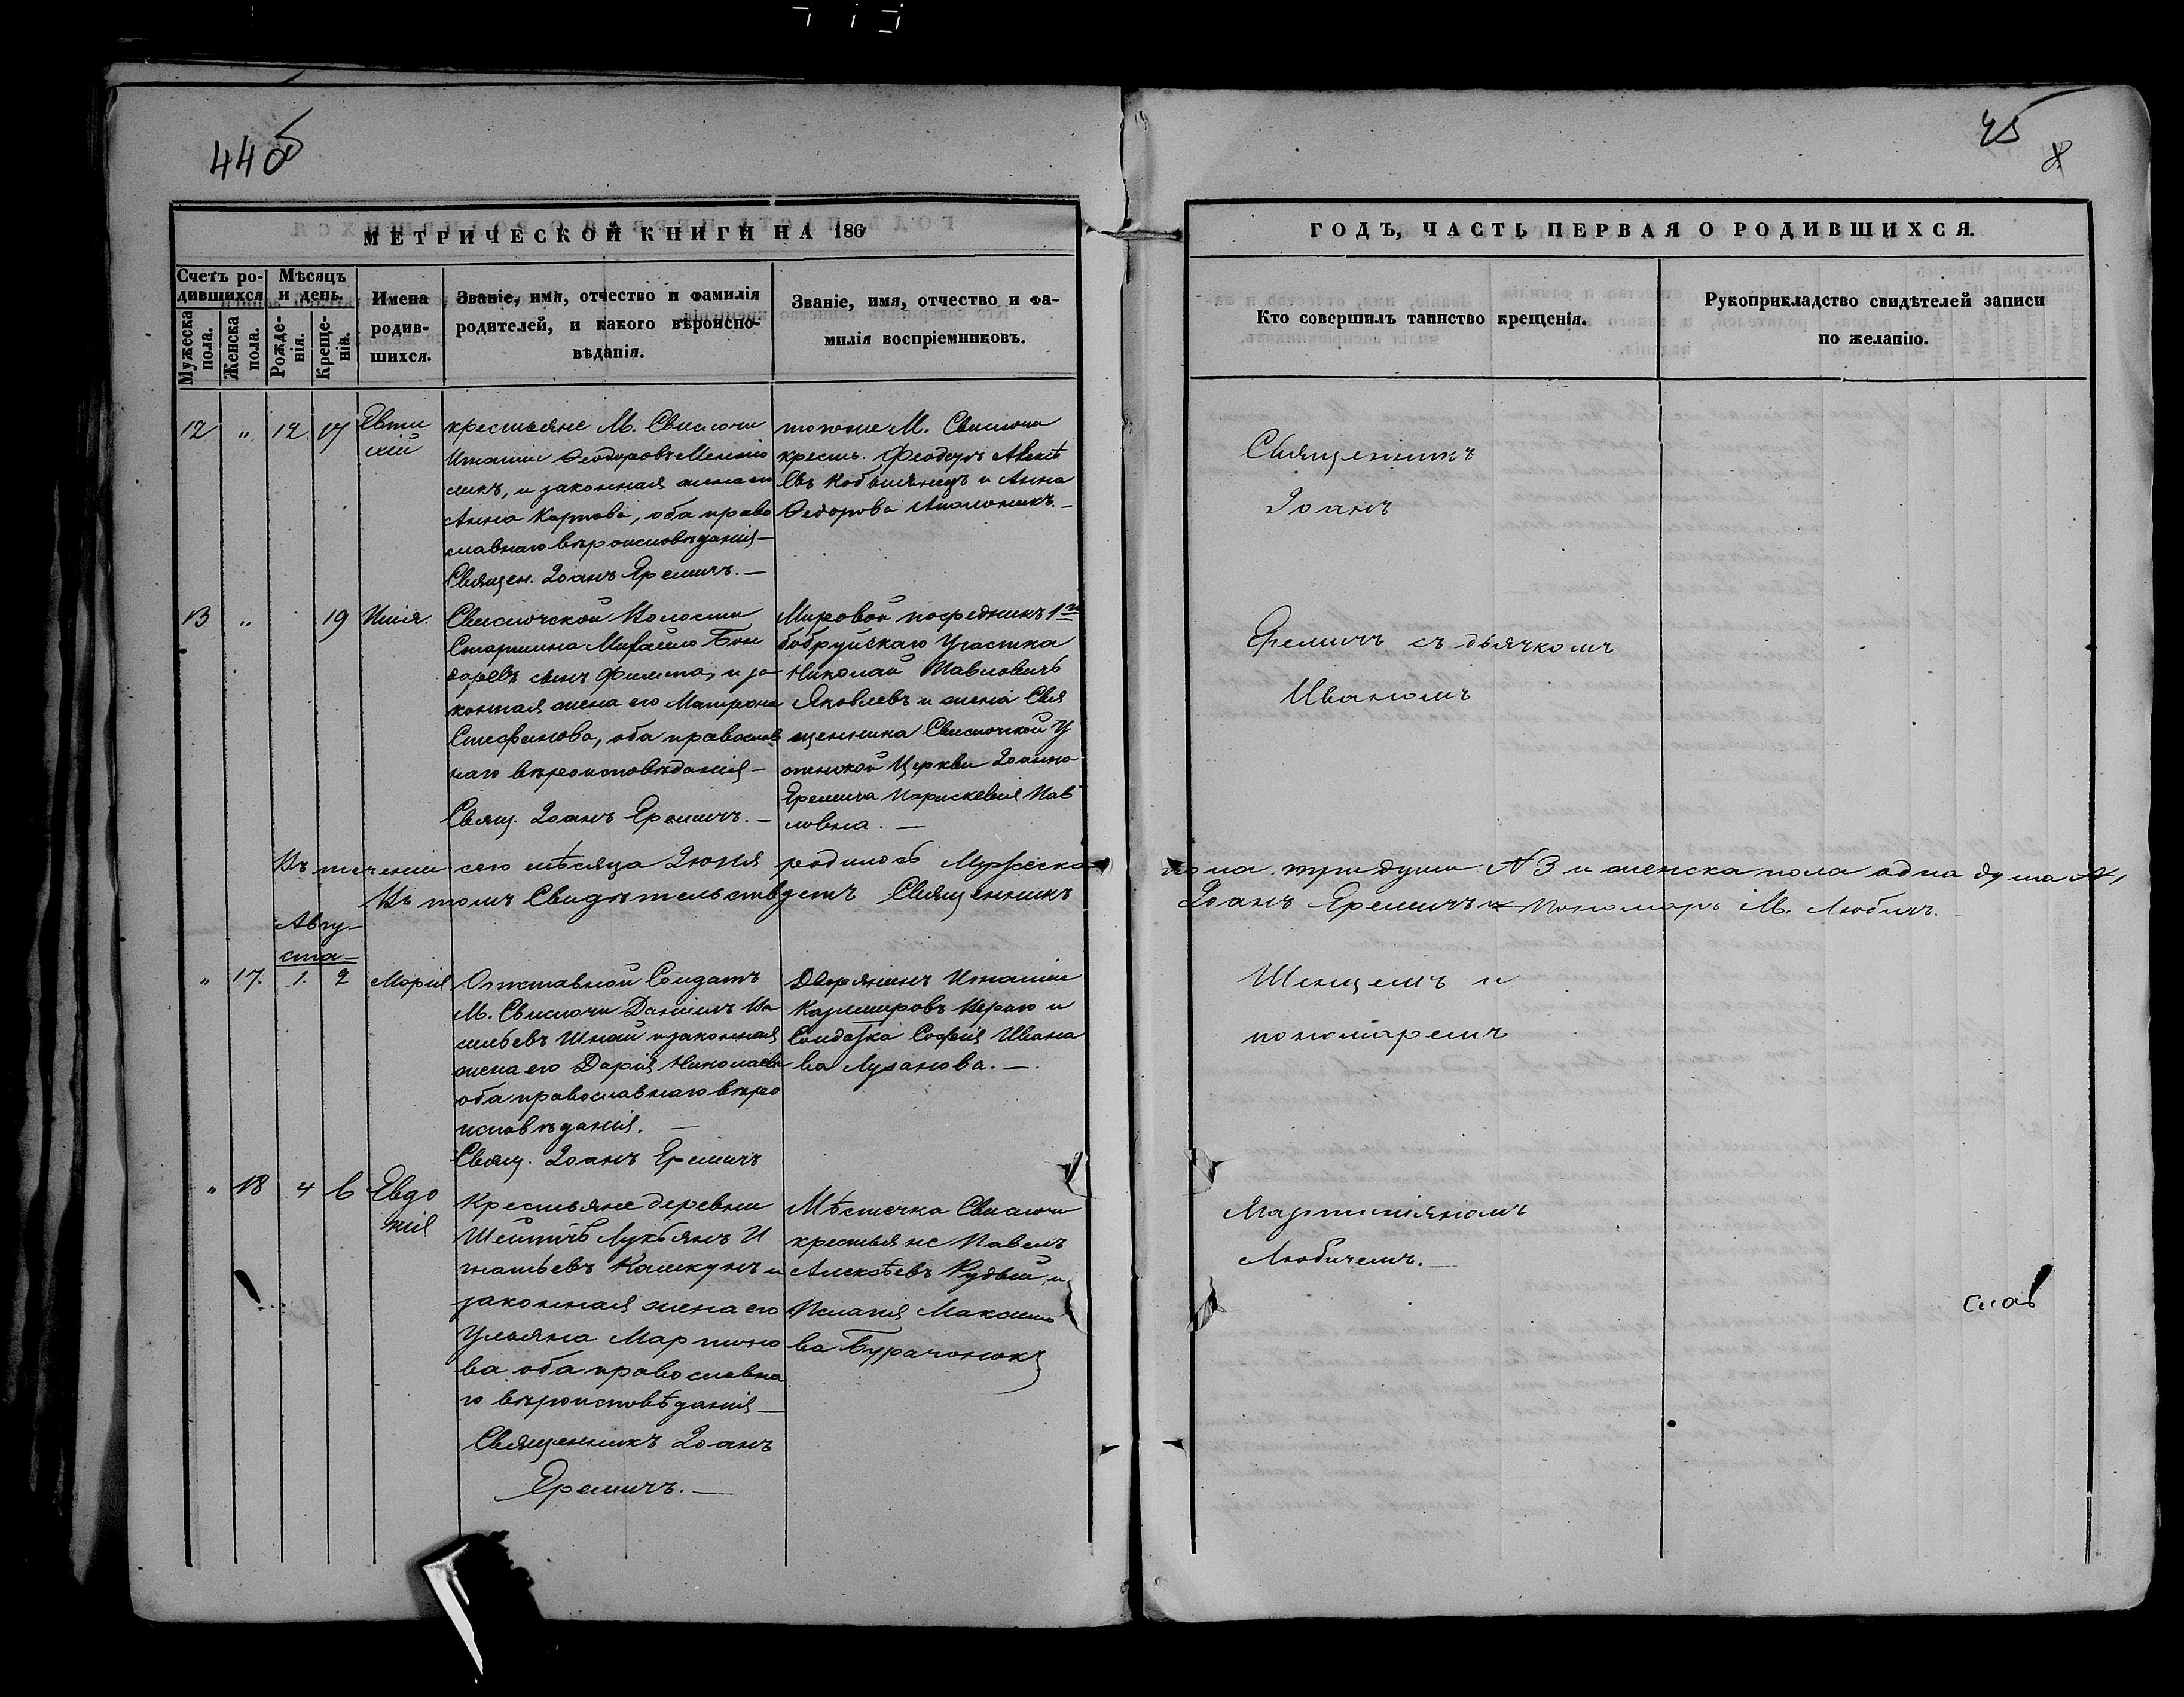 44 об
45
8
МЕТРИЧЕСКОЙ КНИГИ НА 186
ГОДЪ, ЧАСТЬ ПЕРВАЯ О РОДИВШИХСЯ.
Счетъ ро-
дившихся
Мужеска
пола.
Женска
пола.
Мѣсяцъ
и день.
Рожде-
нія.
Креще-
нія.
Имена
родив-
шихся.
Званіе, имя, отчество и фамилія
родителей, и какого вѣроиспо-
вѣданія.
Званіе, имя, отчество и фа-
милія воспріемниковъ.
Кто совершилъ таинство крещенія.
Рукоприкладство свидѣтелей записи
по желанію.
12 " 12 17
Евти
хій
крестьяне М. Свислочи
Игнатій Ѳеодоровъ
и законная жена его
Анна Карпова, оба право
славнаго вѣроисповѣданія—
Священ. Іоанъ Еремичъ.—
тогоже М. Свислочи
крест. Феодоръ Алексѣ
евъ и Анна
Ѳедорова
Священникъ
Іоанъ
13 " 19 Илія.
Свислочской Волости
Старшина Михайло Бон
даревъ сынъ и за
конная жена его Матрона
Стефанова, оба православ
наго вѣроисповѣданія—
Свящ. Іоанъ Еремичъ.—
Мировой посредникъ 1го
бобруйскаго Участка
Николай Павловичъ
Яковлевъ и жена Свя
щенника Свислочской У
спенской Церкви Іоанна
Еремича Параскевія Пав
ловна.—
Еремичъ съ дьячкомъ
Иваномъ
Въ теченіи сего мѣсяца Іюля родилось Мужеска
пола три души N 3 и женска пола одна душа N 1
Въ томъ Свидѣтельствуетъ Священникъ
Іоанъ Еремичъ Пономарь М. Любичъ.
Авгу-
ста—
" 17. 1. 2 Марія
Отставной Солдатъ
М. Свислочи Даніилъ Ва
сильевъ и законная
жена его Дарія Николаева
оба православнаго вѣро
исповѣданія.—
Свящ. Іоанъ Еремичъ
Дворянинъ Игнатій
Казимировъ и
Солдатка Софія Ивано
ва Лузанова.—
и
пономаремъ
" 18 4 6
Евдо
кія
Крестьяне деревни
Лукьянъ И
гнатьевъ и
законная жена его
Ульяна Мартино
ва оба православна
го вѣроисповѣданія—
Священникъ Іоанъ
Еремичъ.—
Мѣстечка Свислочи
крестьяне Павелъ
Алексѣевъ Рудый и
Пелагія Максимо
ва Бурачонокъ
Мартиніяномъ
Любичемъ.—